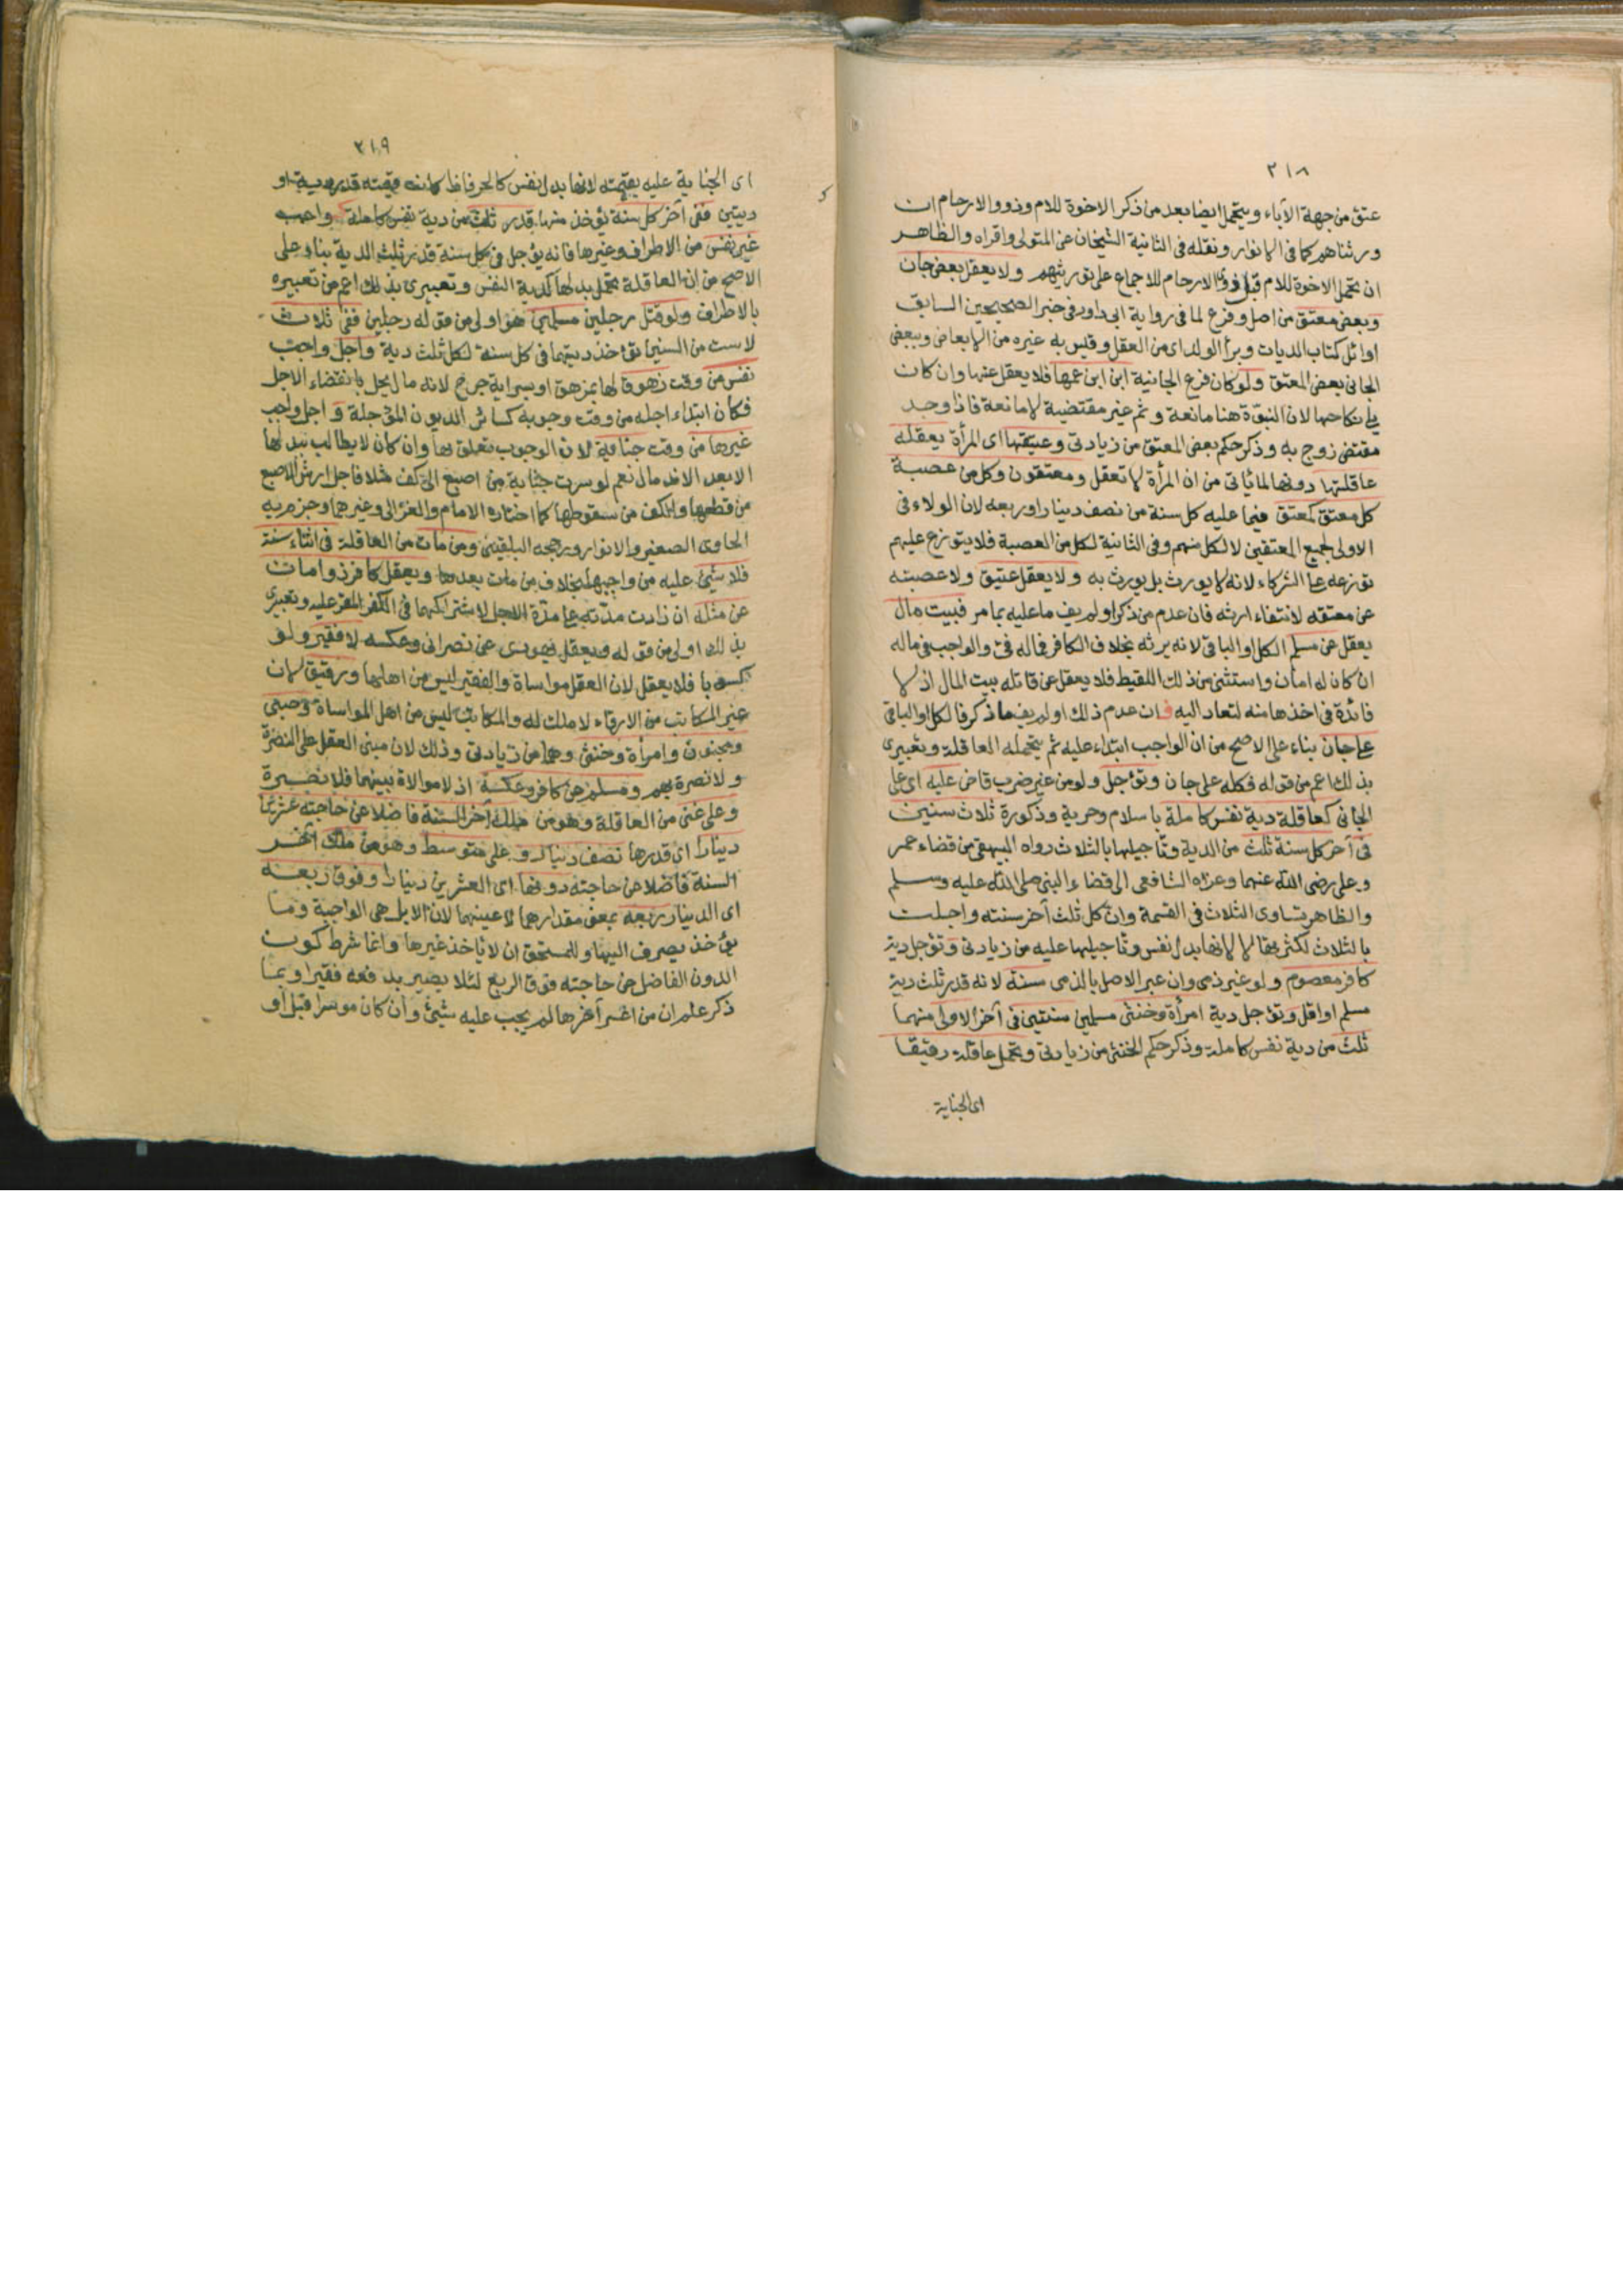 ٣١٨
عتق من جهة الآباء ويتحمل ايضا بعد من ذكر الاخوة للام وذووا الارحام ان
ورثناهم كما في الانوار ونقله في الثانية الشيخان عن المتولي واقراه والظاهر
ان تحمل الاخوة للام قبل ذوي الارحام للاجماع على توريثهم ولا يعقل بعض جان
وبعض معتق من اصل وفرع لما في رواية ابي داود في خبر الصحيحين السابق
اوائل كتاب الديات وبرأ الولد اي من العقل وقيس به غيره من الابعاض وببعض
الجاني بعض المعتق ولو كان فرع الجانية ابن ابن عمها فلا يعقل عنها وان كان
يلي نكاحها لان البنوة هنا مانعة وثم غير مقتضية لا مانعة فاذا وجد
مقتض زوج به وذكر حكم بعض المعتق من زيادتي وعتيقها اي المرأة يعقله
عاقلتها دونها لما ياتي من ان المرأة لا تعقل ومعتقون وكل من عصبة
كل معتق كمعتق فيما عليه كل سنة من نصف دينار او ربعه لان الولاء في
الاولى لجميع المعتقين لا لكل منهم وفي الثانية لكل من العصبة فلا يتوزع عليهم
توزعه على الشركاء لانه لا يورث بل يورث به ولا يعقل عتيق ولا عصبته
عن معتقه لانتفاء ارثه فان عدم من ذكر او لم يف ما عليه بما مر فبيت مال
يعقل عن مسلم الكل او الباقي لانه يرثه بخلاف الكافر فماله فئ والواجب في ماله
ان كان له امان واستثنى من ذلك اللقيط فلا يعقل عن قاتله بيت المال اذ لا
فائدة في اخذها منه لتعاد اليه فان عدم ذلك او لم يف ما ذكر فالكل او الباقي
على جان بناء على الاصح من ان الواجب ابتداء عليه ثم يتحمله العاقلة وتعبيري
بذلك اعم من قوله فكله على جان وتؤجل ولو من غير ضرب قاض عليه اي على
الجاني كعاقلة دية نفس كاملة باسلام وحرية وذكورة ثلاث سنين
في آخر كل سنة ثلث من الدية وتاجيلها بالثلاث رواه البيهقي من قضاء عمر
وعلي رضي الله عنهما وعزاه الشافعي الى قضاء النبي صلى الله عليه وسلم
والظاهر تساوي الثلاث في القسمة وان كل ثلث آخر سنته واجلت
بالثلاث لكثرتها لا لانها بدل نفس وتاجيلها عليه من زيادتي وتؤجل دية
كافر معصوم ولو غير ذمي وان عبر الاصل بالذمي سنة لانه قدر ثلث دية
مسلم او اقل وتؤجل دية امرأة وخنثى مسلمين سنتين في آخر الاولى منهما
ثلث من دية نفس كاملة وذكر حكم الخنثى من زيادتي وتحمل عاقلة رقيقا
اي الجناية
٣١٩
اي الجناية عليه بقيمته لانها بدل نفس كالحر فاذا كانت قيمته قدر دية او
ديتين ففي آخر كل سنة يؤخذ منها قدر ثلث من دية نفس كاملة واجب
غير نفس من الاطراف وغيرها فانه يؤجل في كل سنة قدر ثلث الدية بناء على
الاصح من ان العاقلة تحمل بدلها كدية النفس وتعبيري بذلك اعم من تعبيره
بالاطراف ولو قتل رجلين مسلمين هو اولى من قوله رجلين ففي ثلاث
لا ست من السنين تؤخذ ديتهما في كل سنة لكل ثلث دية واجل واجب
نفس من وقت زهوق لها بمزهق او بسراية جرح لانه مال يحل بانقضاء الاجل
فكان ابتداء اجله من وقت وجوبه كسائر الديون المؤجلة و اجل واجب
غيرها من وقت جناية لان الوجوب تعلق بها وان كان لا يطالب ببدلها
الا بعد الاندمال نعم لو سرت جناية من اصبع الى كف مثلا فاجل ارش الاصبع
من قطعها والكف من سقوطها كما اختاره الامام والغزالي وغيرهما وجزم به
الحاوي الصغير والانوار ورجحه البلقيني ومن مات من العاقلة في اثناء سنة
فلا شيئ عليه من واجبها بخلاف من مات بعدها ويعقل كافر ذو امان
عن مثله ان زادت مدته على مدة الاجل لاشتراكهما في الكفر المقر عليه وتعبيري
بذلك اولى من قوله ويعقل يهودي عن نصراني وعكسه لا فقير ولو
كسوبا فلا يعقل لان العقل مواساة والفقير ليس من اهلها ورقيق لان
غير المكاتب من الارقاء لا ملك له والمكاتب ليس من اهل المواساة وصبي
ومجنون وامرأة وخنثى وهما من زيادتي وذلك لان مبنى العقل على النصرة
ولا نصرة بهم ومسلم عن كافر وعكسه اذ لا موالاة بينهما فلا نصرة
وعلى غني من العاقلة وهو من ملك آخر السنة فاضلا عن حاجته عشرين
دينارا اي قدرها نصف دينار و على متوسط وهو من ملك آخر
السنة فاضلا عن حاجته دونها اي العشرين دينارا وفوق ربعه
اي الدينار ربعه بمعنى مقدارهما لا عينهما لان الابل هي الواجبة وما
يؤخذ يصرف اليها وللمستحق ان لا ياخذ غيرها وانما شرط كون
الدون الفاضل عن حاجته فوق الربع لئلا يصير بدفعه فقيرا وبما
ذكر علم ان من اعسر آخرها لم يجب عليه شيئ وان كان موسرا قبل او